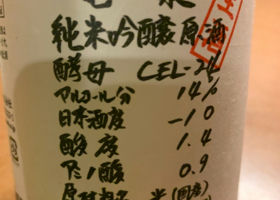 亀泉
純米吟醸原酒
生酒
酵母 CEL-24
アルコール分 14%
日本酒度 -10
酸度 1.4
アミノ酸 0.9
原材料名 米(国産)